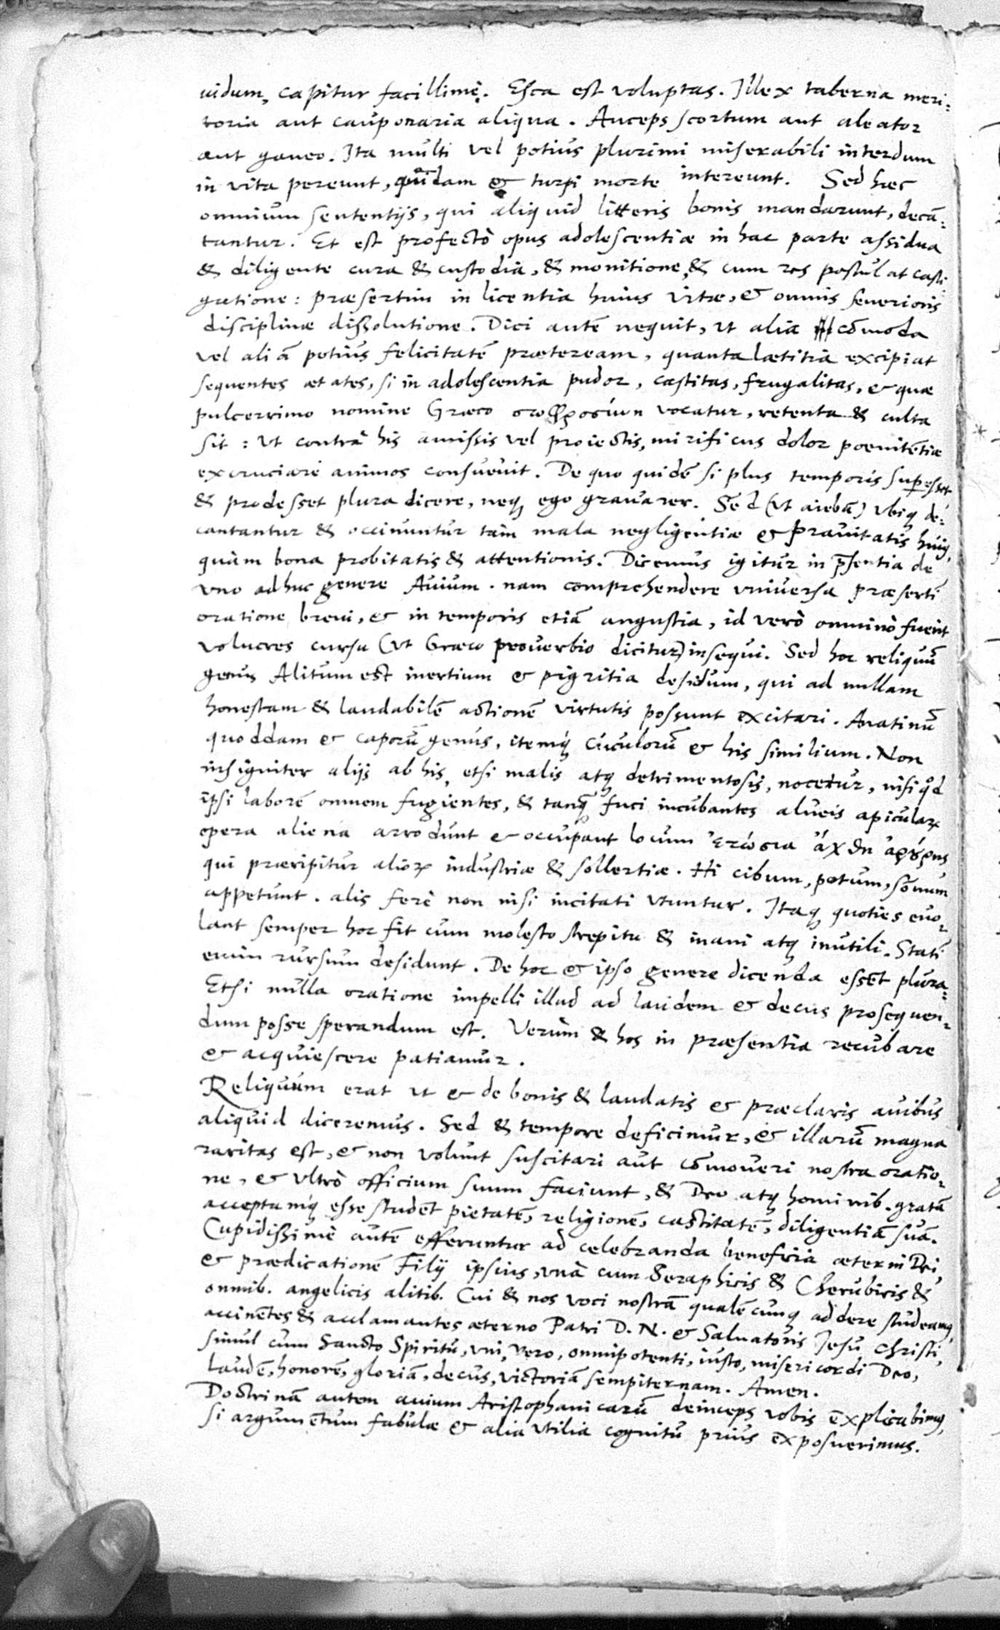 uidum, capitur facillimè. Esca est voluptas. Illex taberna meri-
toria aut cauponaria aliqua. Auceps scortum aut aleator
aut ganeo. Ita multi vel potius plurimi miserabili interdum
in vita pereunt, quidam & turpi morte intereunt. Sed hæc
omnium sententijs, qui aliquid litteris bonis mandarunt, decā-
tantur. Et est profectò opus adolescentiæ in hac parte assidua
& diligente cura & custodia, & monitione, & cum res postulat casti
gatione: præsertim in licentia huius vitæ, & omnis severioris
disciplinæ dissolutione. Dici autē nequit, ut alia cōmoda
vel aliā potius felicitatē præteream, quanta lætitia excipiat
sequentes ætates, si in adolescentia pudor, castitas, frugalitas, & quæ
pulcerrimo nomine Græco vocatur, retenta & culta
sit: Ut contrà his amissis vel proiectis, mirificus dolor poenitētiæ
excruciare animos consuevit. De quo quidē si plus temporis superesset
& prodesset plura dicere, neq; ego gravarer. Sed (ut aiebā) ubiq; de-
cantantur & occinuntur tam mala negligentiæ & pravitatis huiꝰ,
quàm bona probitatis & attentionis. Dicemus igitur in p̄sentia de
uno adhuc genere Avium. nam comprehendere universa præsertī
oratione brevi, & in temporis etiā angustia, id verò omninò fuerit
volucres cursu (ut Græco proverbio dicitur) insequi. Sed hoc reliquū
genus Alitum est inertium & pigritia desidum, qui ad nullam
honestam & laudabilē actionē virtutis possunt excitari. Anatinū
quoddam & caporū genus, itemq; cuculorū & his similium. Non
insigniter alijs ab his, etsi malis atq; detrimentosis, nocetur, nisi qd̄
ipsi laborē omnem fugientes, & tanq̄ fuci incubantes alueis apicularꝝ
opera aliena arrodunt & occupant locum ἐτώσια ἄχθη ἀρούρης
qui præripitur aliorꝝ industriæ & sollertiæ. Hi cibum, potum, somnum
appetunt. alis ferè non nisi incitati utuntur. Itaq; quoties evo-
lant semper hoc fit cum molesto strepitu & inani atq; inutili. Statī
enim rursum desidunt. De hoc & ipso genere dicenda essēt plura.
Etsi nulla oratione impelli illud ad laudem & decus prosequen-
dum posse sperandum est. Verùm & hos in præsentia recubare
& acquiescere patiamur.
Reliquum erat ut & de bonis & laudatis & præclaris avibus
aliquid diceremus. Sed & tempore deficimur, & illarū magna
raritas est, & non volunt suscitari aut cōmoveri nostra oratio-
ne, & ultrò officium suum faciunt, & Deo atq; hominib. gratā
acceptamq; esse studēt pietatē, religionē, castitatē, diligentiā suā.
Cupidissimè autē efferuntur ad celebranda beneficia æterni Dei
& prædicationē Filij ipsius, unà cum Seraphicis & Cherubicis &
omnib. angelicis alitib. Cui & nos voci nostrā qualēcunq; addere studeamꝰ,
accinētes & acclamantes æterno Patri D. N. & Salvatoris Jesu Christi
simul cum Sancto Spiritu, uni, vero, omnipotenti, iusto, misericordi Deo,
laudē, honorē, gloriā, decus, victoriā sempiternam. Amen.
Doctrinā autem avium Aristophanicarū deinceps vobis explicabimꝰ,
si argumētum fabulæ & alia utilia cognitu prius exposuerimus.